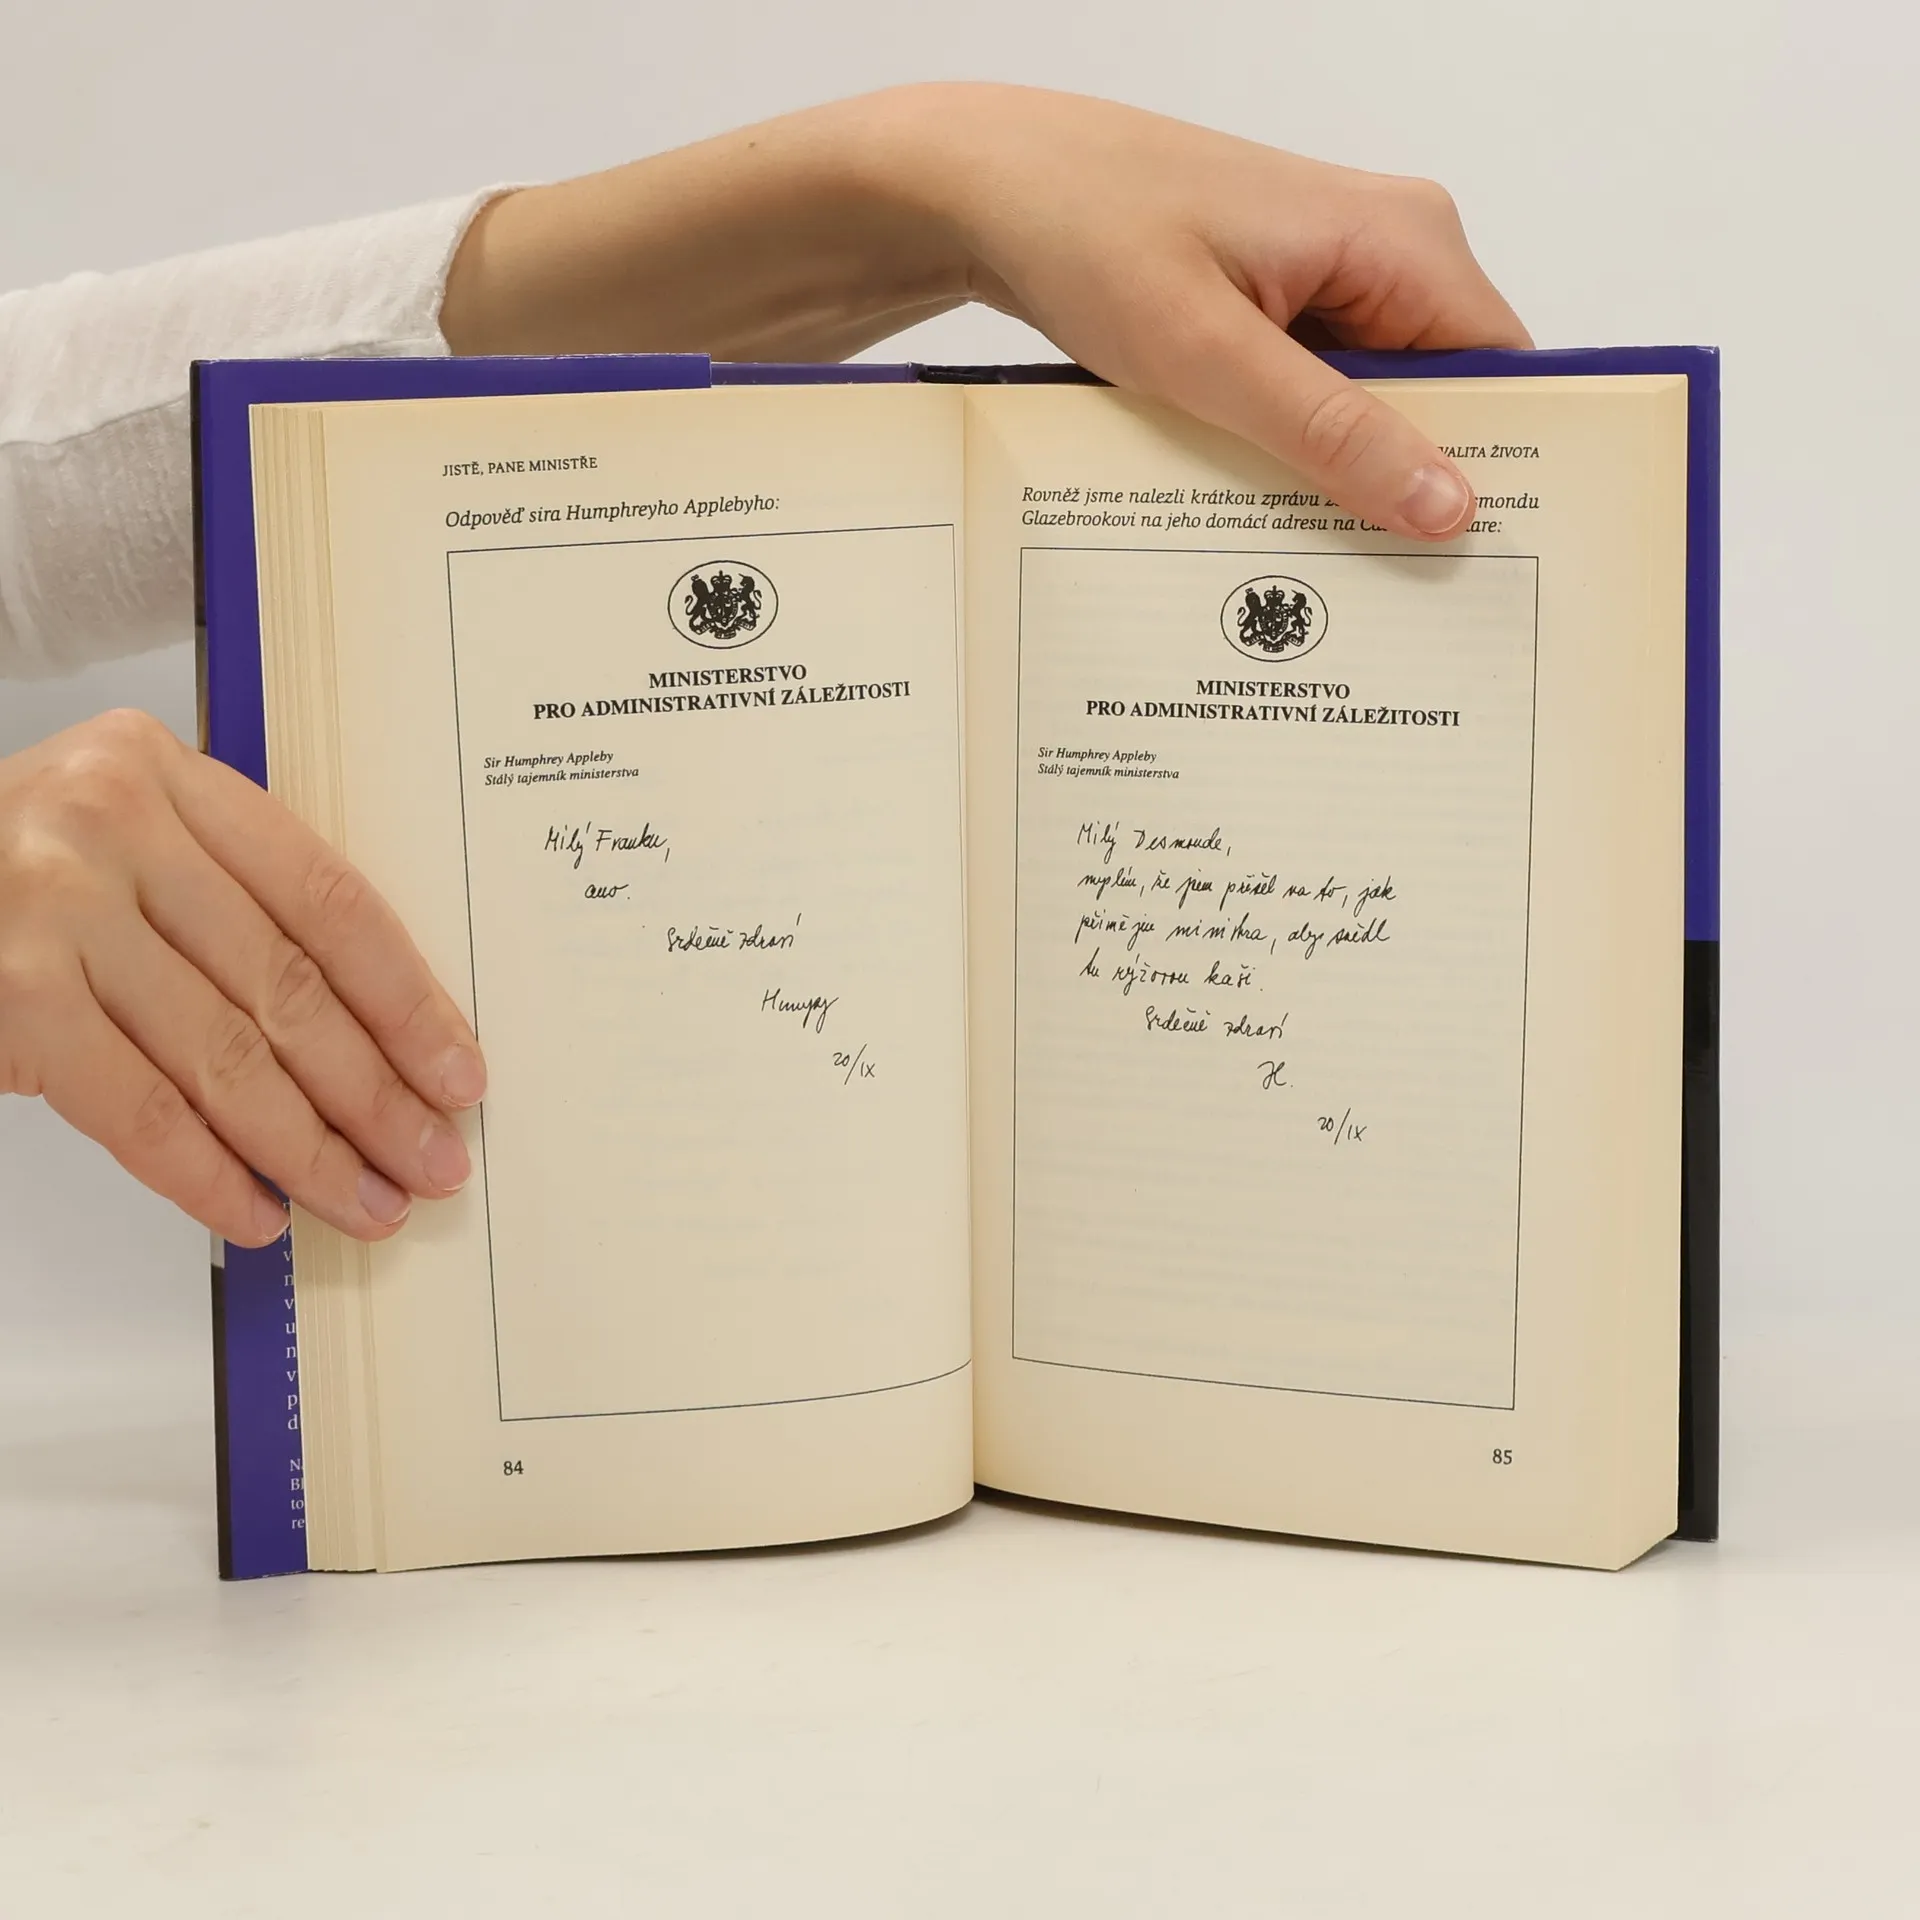 JISTĚ, PANE MINISTŘE
Odpověď sira Humphreyho Applebyho:
MINISTERSTVO
PRO ADMINISTRATIVNÍ ZÁLEŽITOSTI
Sir Humphrey Appleby
Stálý tajemník ministerstva
Milý Franku,
ano.
Srdečně zdraví
Humpy
20/IX
84
VALITA ŽIVOTA
Rovněž jsme nalezli krátkou zprávu smondu
Glazebrookovi na jeho domácí adresu na are:
MINISTERSTVO
PRO ADMINISTRATIVNÍ ZÁLEŽITOSTI
Sir Humphrey Appleby
Stálý tajemník ministerstva
Milý Desmonde,
myslím, že jsem přišel na to, jak
přimějeme ministra, aby snědl
tu rýžovou kaši.
Srdečně zdraví
H.
20/IX
85
v
n
v
u
n
v
p
d
Na
Bl
to
re